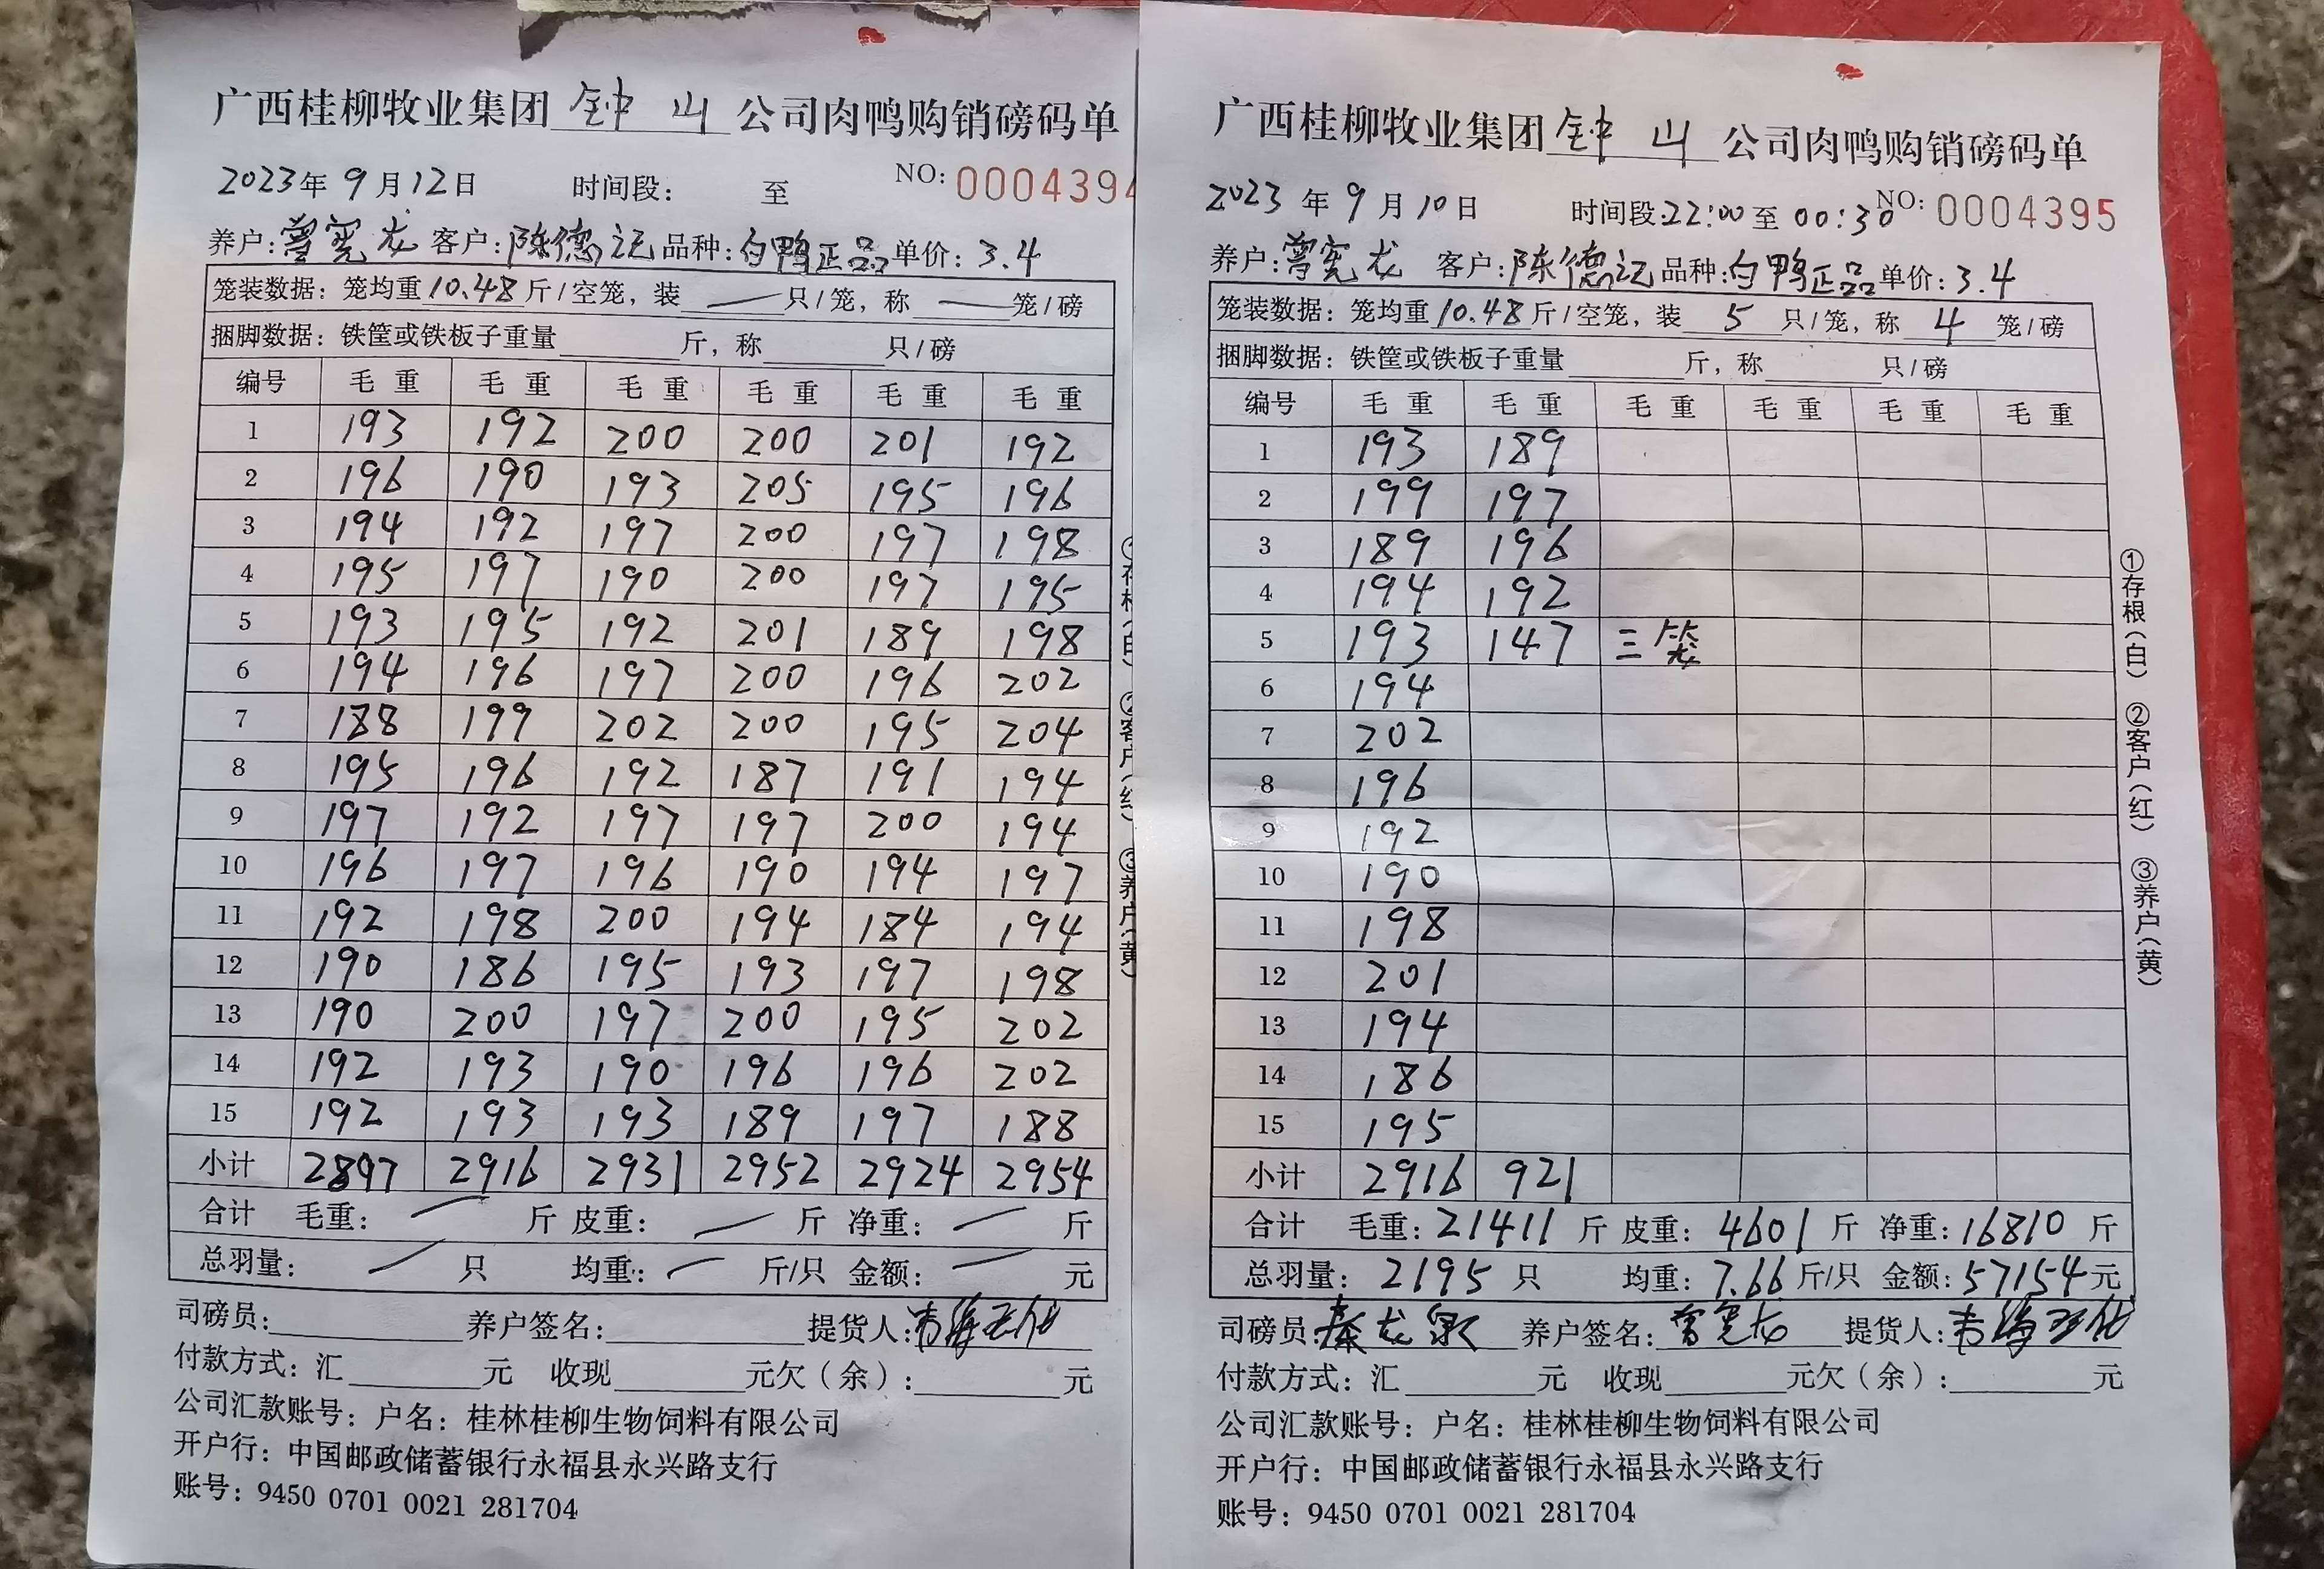 广西桂柳牧业集团 钟山 公司肉鸭购销磅码单
2023年9月12日 时间段: 至 NO: 0004394
养户:曾宪龙 客户:陈德记 品种:白鸭正品 单价:3.4
笼装数据:笼均重10.48斤/空笼,装 — 只/笼,称 — 笼/磅
捆脚数据:铁筐或铁板子重量 斤,称 只/磅
编号 毛重 毛重 毛重 毛重 毛重 毛重
1 193 192 200 200 201 192
2 196 190 193 205 195 196
3 194 192 197 200 197 198
4 195 197 190 200 197 195
5 193 195 192 201 189 198
6 194 196 197 200 196 202
7 188 199 202 200 195 204
8 195 196 192 187 191 194
9 197 192 197 197 200 194
10 196 197 196 190 194 197
11 192 198 200 194 184 194
12 190 186 195 193 197 198
13 190 200 197 200 195 202
14 192 193 190 196 196 202
15 192 193 193 189 197 188
小计 2897 2916 2931 2952 2924 2954
合计 毛重: — 斤 皮重: — 斤 净重: — 斤
总羽量: — 只 均重: — 斤/只 金额: — 元
司磅员: 养户签名: 提货人:
付款方式:汇 元 收现 元欠(余): 元
公司汇款账号:户名:桂林桂柳生物饲料有限公司
开户行:中国邮政储蓄银行永福县永兴路支行
账号:9450 0701 0021 281704
广西桂柳牧业集团 钟山 公司肉鸭购销磅码单
2023年9月10日 时间段:22:00至00:30 NO: 0004395
养户:曾宪龙 客户:陈德记 品种:白鸭正品 单价:3.4
笼装数据:笼均重10.48斤/空笼,装 5 只/笼,称 4 笼/磅
捆脚数据:铁筐或铁板子重量 斤,称 只/磅
编号 毛重 毛重 毛重 毛重 毛重 毛重
1 193 189
2 199 197
3 189 196
4 194 192
5 193 147 三笼
6 194
7 202
8 196
9 192
10 190
11 198
12 201
13 194
14 186
15 195
小计 2916 921
合计 毛重:21411斤 皮重:4601斤 净重:16810斤
总羽量:2195只 均重:7.66斤/只 金额:57154元
司磅员:秦龙泉 养户签名:曾宪龙 提货人:
付款方式:汇 元 收现 元欠(余): 元
公司汇款账号:户名:桂林桂柳生物饲料有限公司
开户行:中国邮政储蓄银行永福县永兴路支行
账号:9450 0701 0021 281704
①存根(白) ②客户(红) ③养户(黄)